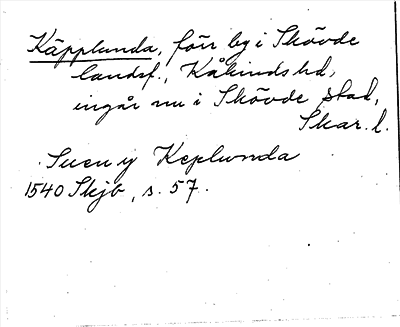 Käpplunda, förr by i Skövde
landsf., Kåkinds hd,
ingår nu i Skövde stad,
Skar. l.
Suen y Keplunda
1540 Skjb, s. 57.